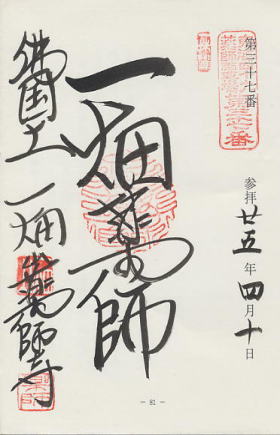 第三十七番
参拝 廿五年四月十日
一畑薬師
佛国土 一畑山薬師寺
- 81 -